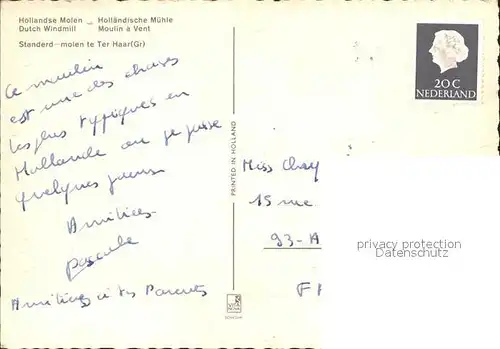 Hollandse Molen - Holländische Mühle
Dutch Windmill Moulin à Vent
Standerd-molen te Ter Haar(Gr)
Ce moulin
est une des choses
les plus typiques en
Hollande ou je passe
quelques jours
Amitiées
Pascale
Amitiés à tes Parents
PRINTED IN HOLLAND
20 C
NEDERLAND
Miss Chay
15 rue
93-A
privacy protection
Datenschutz
VITA
NOVA